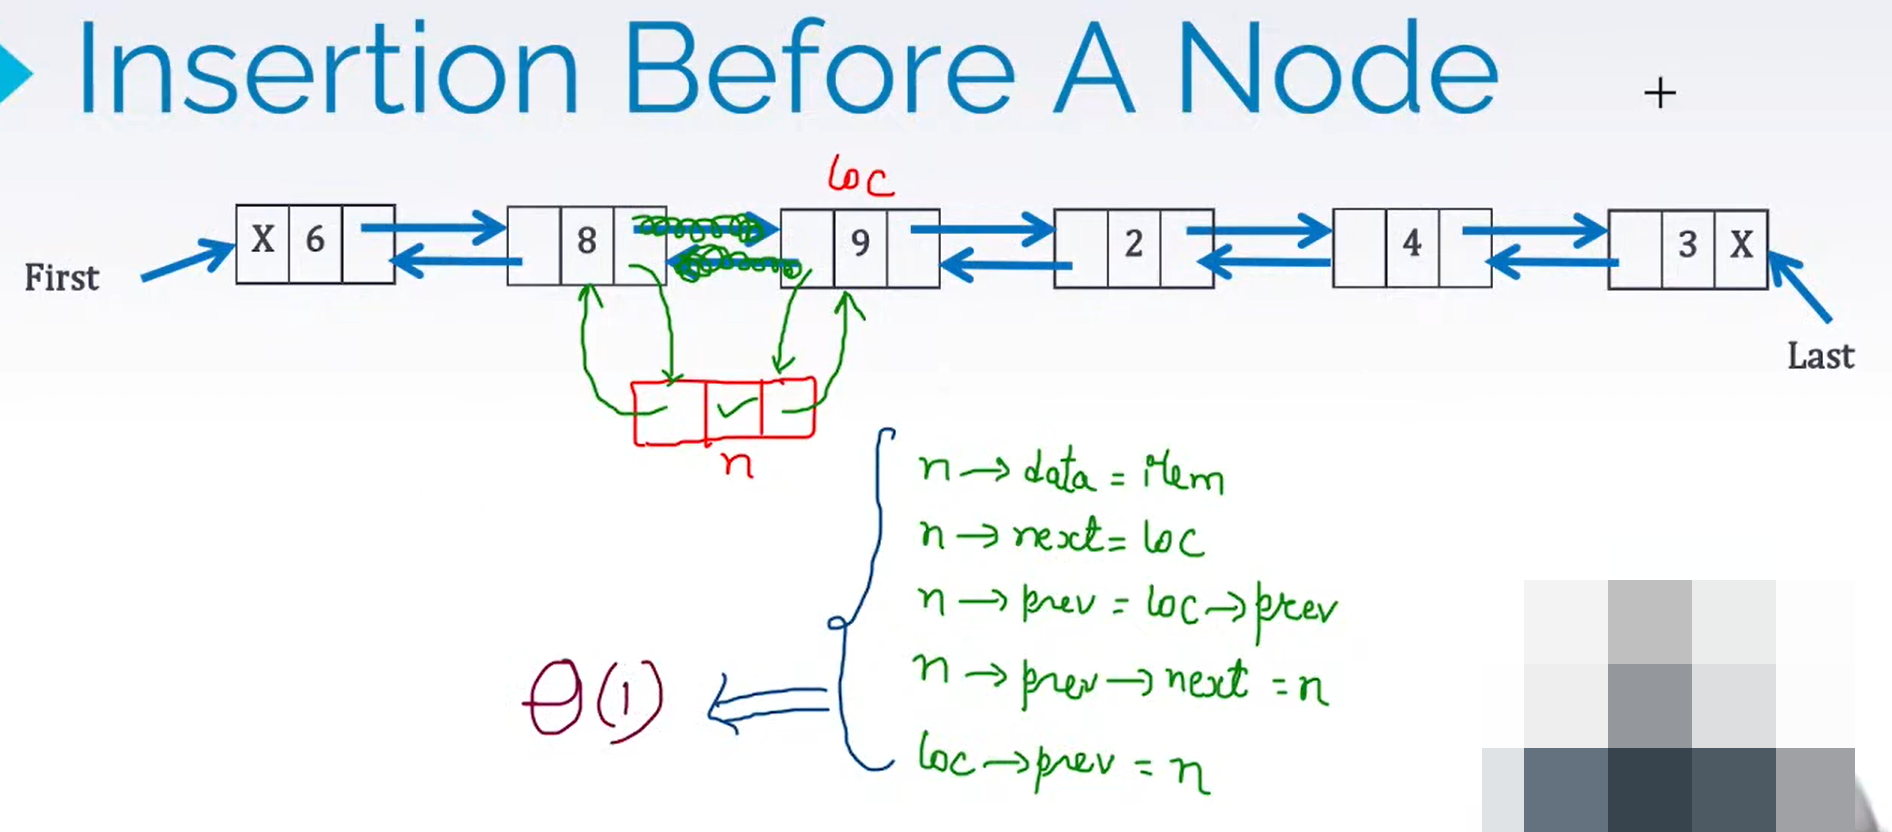 Insertion Before A Node
loc
First X 6 8 9 2 4 3 X
Last
n
n → data = item
n → next = loc
n → prev = loc → prev
n → prev → next = n
θ(1)
loc → prev = n